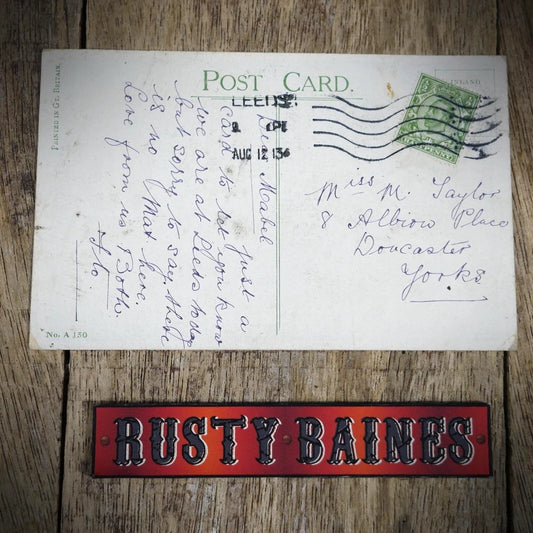 PRINTED IN GT. BRITAIN.
POST CARD.
INLAND
LEEDS
AUG 12 13
Dear Mabel
Just a
card to let you know
we are at Leeds today
but sorry to say there
is no Mat here.
Love from us Both.
Flo.
Miss M. Taylor
8 Albion Place
Doncaster
Yorks
No. A 150
RUSTY BAINES